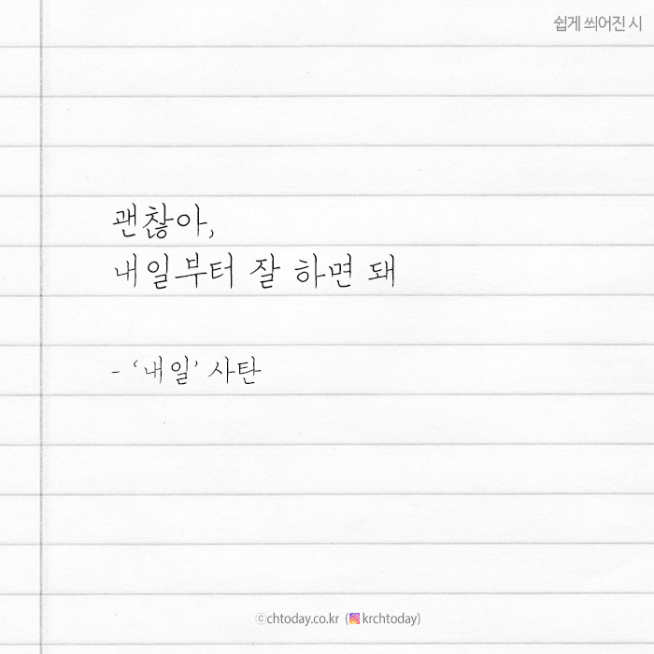 쉽게 씌어진 시
괜찮아,
내일부터 잘 하면 돼
- ‘내일’ 사탄
ⓒchtoday.co.kr (krchtoday)